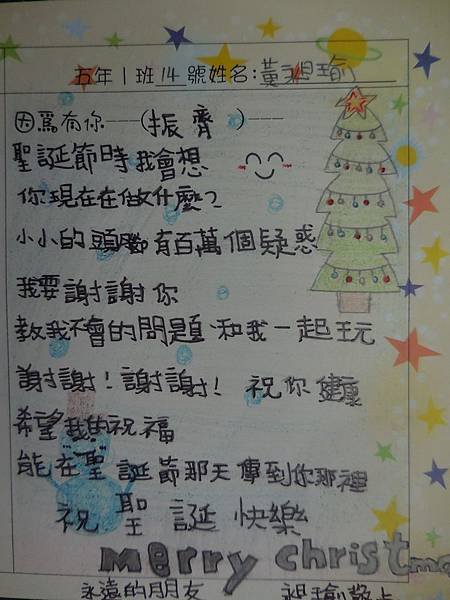 五年1班14號姓名:黃湘瑜
因為有你----(振齊)---
聖誕節時我會想
你現在在做什麼?
小小的頭腦有百萬個疑惑
我要謝謝你
教我不會的問題、和我一起玩
謝謝!謝謝! 祝你健康
希望我的祝福
能在聖誕節那天傳到你那裡
祝聖誕快樂
merry christmas
永遠的朋友 湘瑜敬上